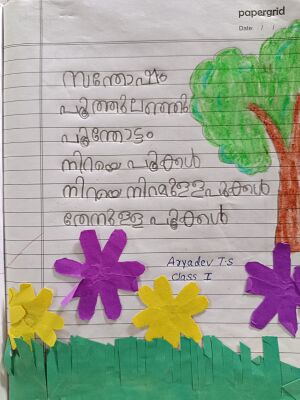 papergrid
Date: / /
സന്തോഷം
പൂത്തുലഞ്ഞു
പൂന്തോട്ടം
നിറയെ പൂക്കൾ
നിറയെ നിറമുള്ള പൂക്കൾ
തേനുള്ള പൂക്കൾ
Aryadev T.S
Class I